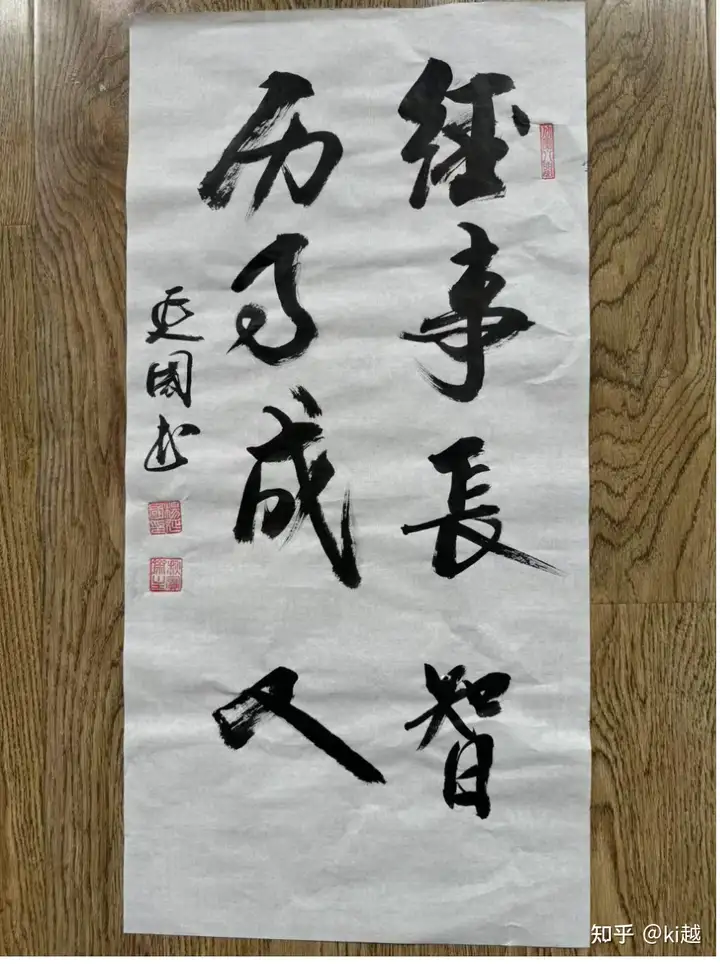 經事長智
历事成人
延國书
知乎 @ki越